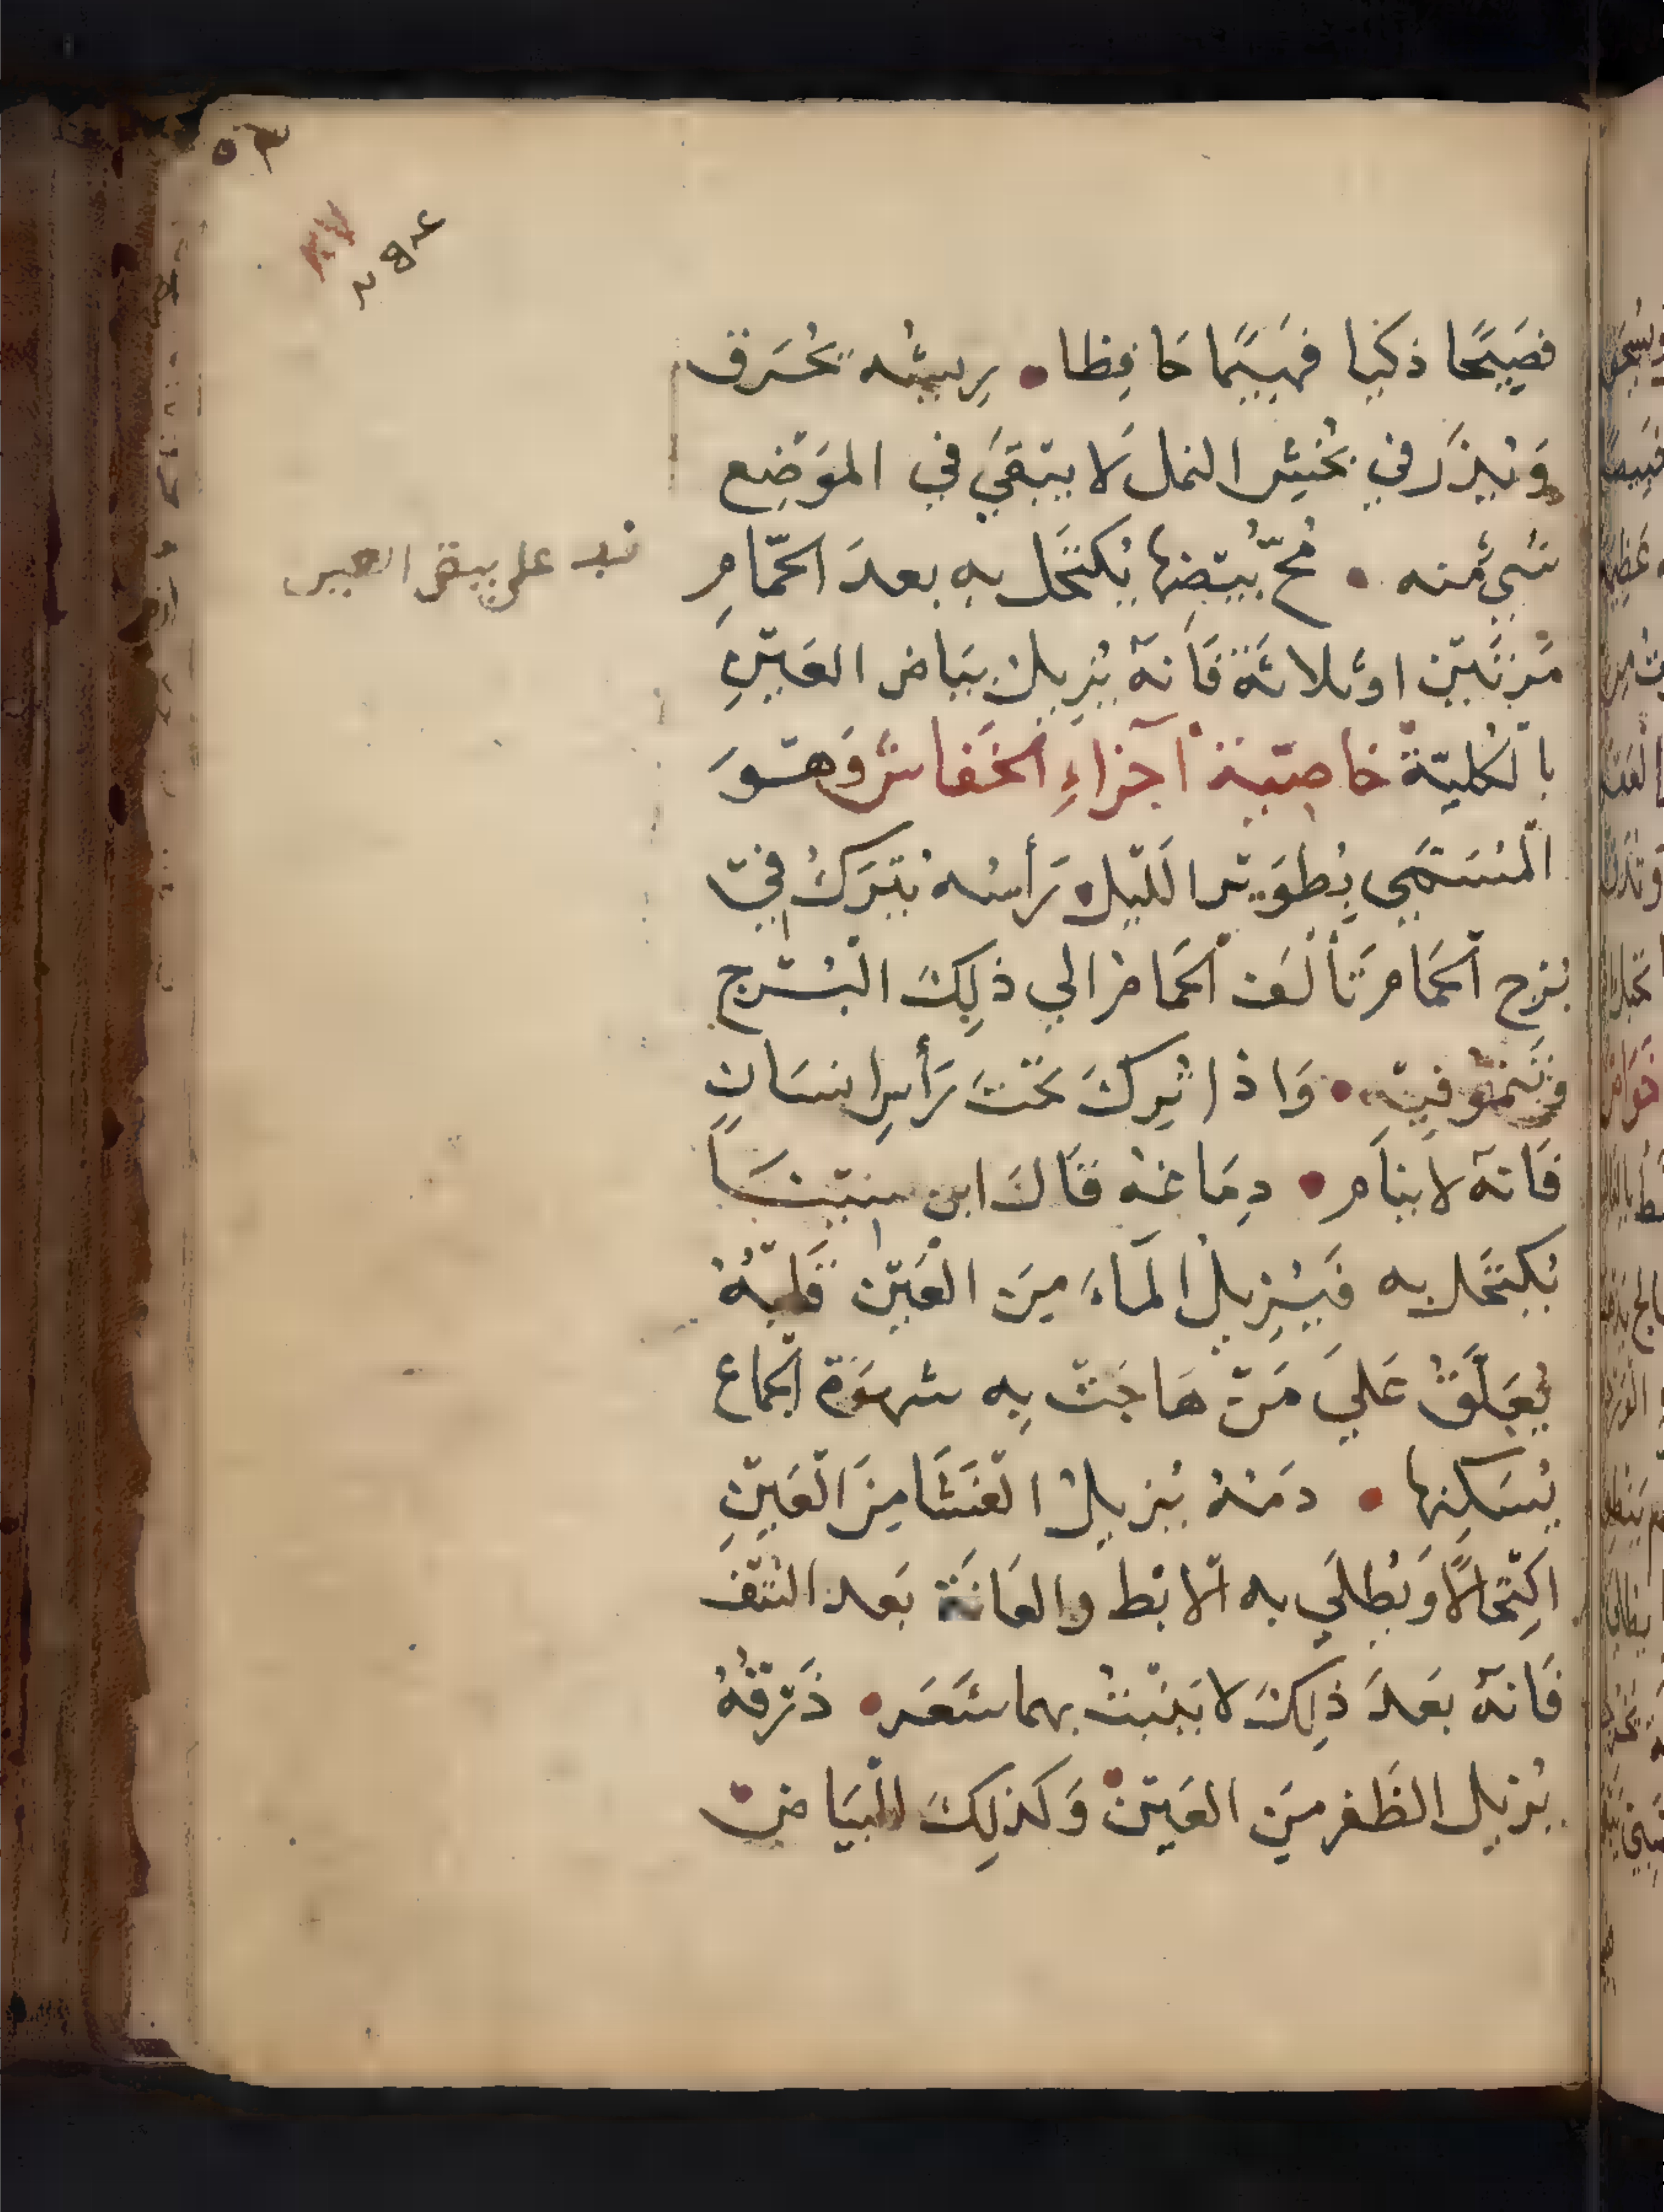 ٥٣
فصَيحًا ذكيا فهيمًا حَافظا • رِيشُه يحُرَق
وَيُذرُ في بخُش النمل لا يبَقىَ في الموَضِع
شيءٌ منه • مُحّ بَيضِها يُكتحَل به بعدَ الحمّامِ
مَرتَين او ثلاثَة فَانهُ يُزِيلُ بيَاض العَينِ
بالكليّة خاصيّة اجزاءِ الخفاش وَهوَ
المُسَمىَ بِطوَير الليل • رَأسُه يُترَكُ في
بُرج الحمَام تَألَف الحمَام الى ذلِكَ البُرج
وتَنمو فيهِ • وَاذا تُرِكَ تحَتَ رَأسِ انسَانٍ
فَانهُ لا ينَام • دِمَاغهُ قَالَ ابن سِينَا
يُكتحَل به فَيُزِيلُ المَاءَ مِنَ العَين قَلبُهُ
يُعَلَّقُ عَلىَ مَن هَاجَت بِه شهوَة الجماع
يُسَكِنها • دَمُهُ يُزِيلُ العَشَا مِنَ العَينِ
اكتِحالًا وَيُطلىَ به الابْط والعَانَة بَعد النتف
فَانهُ بعَدَ ذلِكَ لا يَنبتُ بهما شعَر • ذَرقُهُ
يُزيل الظفر مِنَ العَينِ وَكذلِكَ البيَاض
على بيض العين